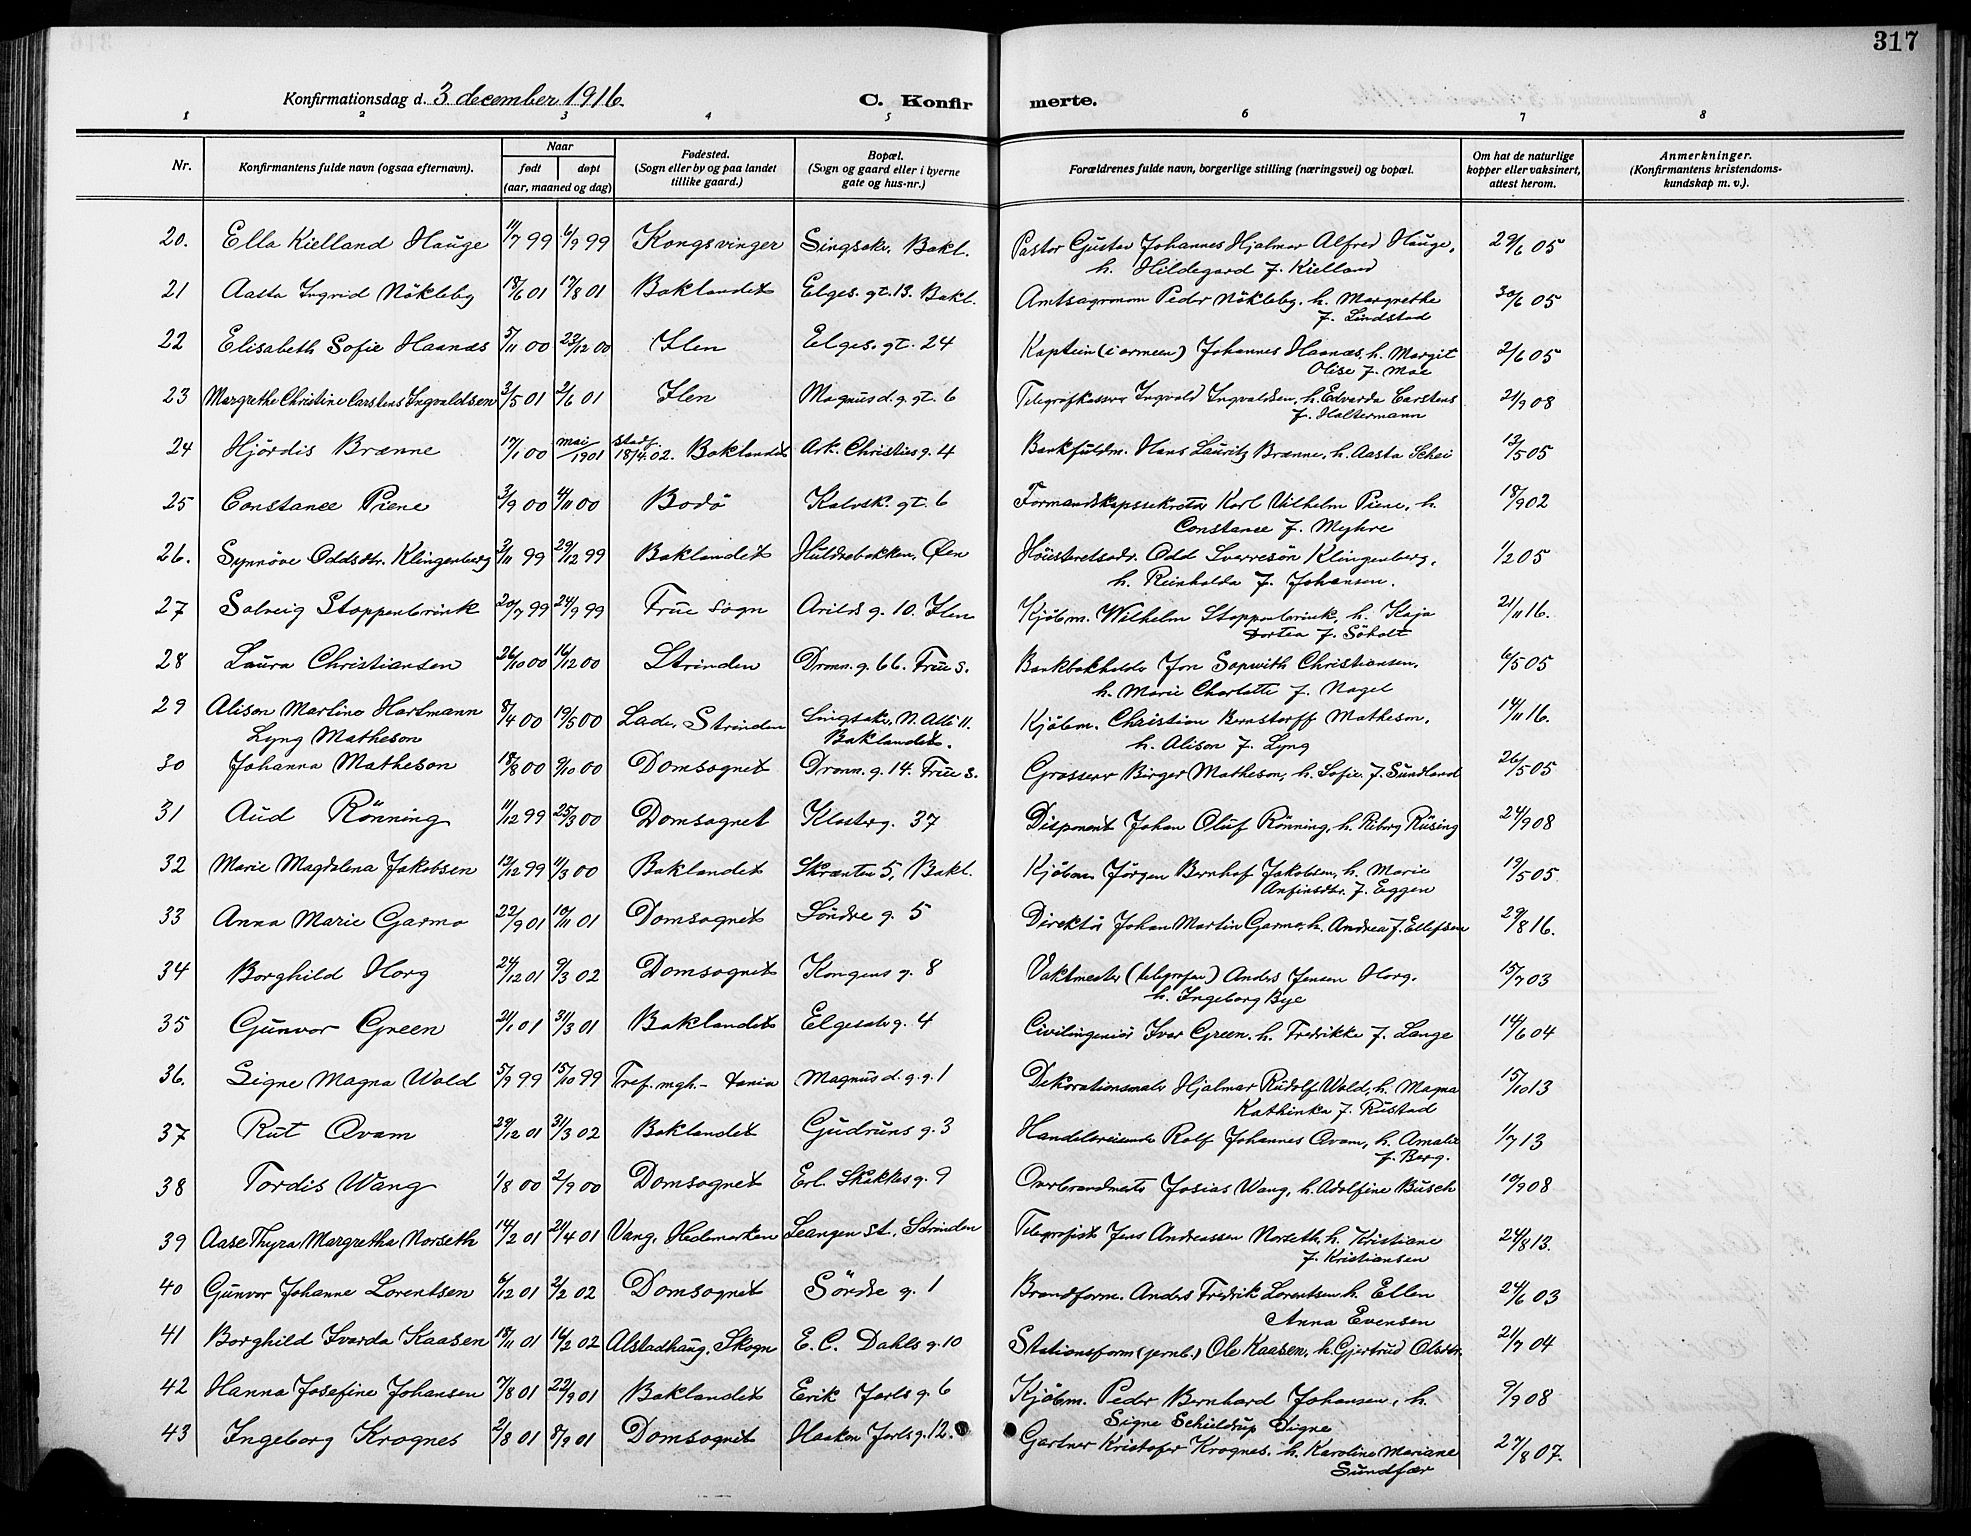 317
Konfirmationsdag d. 3 december 1916.
C. Konfir merte.
1 2 3 4 5 6 7 8
Nr. Konfirmantens fulde navn (ogsaa efternavn). Naar født døpt (aar, maaned og dag) Fødested. (Sogn eller by og paa landet tillike gaard.) Bopæl. (Sogn og gaard eller i byerne gate og hus-nr.) Forældrenes fulde navn, borgerlige stilling (næringsvei) og bopæl. Om hat de naturlige kopper eller vaksinert, attest herom. Anmerkninger. (Konfirmantens kristendoms-kundskap m. v.).
20. Ella Kielland Hauge 11/7 99 6/9 99 Kongsvinger Singsakr. Bakl. Pastor Gustav Johannes Hjalmar Alfred Hauge, 29/6 05
h. Hildegard f. Kielland
21 Aasta Ingrid Nökleby 18/6 01 17/8 01 Baklandet Elges. gt. 13. Bakl. Amtsagronom Peder Nökleby, h. Margrethe 30/6 05
f. Lindstad
22 Elisabeth Sofie Haanæs 5/11 00 23/12 00 Ilen Elges. gt. 24 Kaptein (i armeen) Johannes Haanæs, h. Margit 2/6 05
Olise f. Moe
23 Margrethe Christine Carstens Ingvaldsen 3/5 01 2/6 01 Ilen Magnus d. g. gt. 6 Telegrafkasser Ingvald Ingvaldsen, h. Edvarda Carstens 21/9 08
f. Haltermann
24 Hjördis Brænne 17/1 00 mai/1901 stadf. 18/4.02. Baklandet Ark. Christies g. 4 Bankfuldm. Hans Lauritz Brænne, h. Aasta Schei 13/5 05
25 Constance Piene 3/9 00 4/11 00 Bodö Kalvsk. gt. 6 Formandskapssekretær Karl Vilhelm Piene, h. 18/9 02
Constance f. Myhre
26. Synnöve Oddsdtr. Klingenberg 3/11 99 29/12 99 Baklandet Huldrebakken, Øen Höiesteretsadv. Odd Sverresön Klingenberg, 1/2 05
h. Reinholda f. Johansen.
27 Solveig Stoppenbrink 20/7 99 24/9 99 Frue sogn Arilds g. 10. Ilen Kjöbm. Wilhelm Stoppenbrink, h. Kaja 21/11 16.
Dortea f. Söholt
28 Laura Christiansen 26/10 00 16/12 00 Strinden Dronn. g. 66. Frue s. Bankbokholder Jon Sopwith Christiansen, 6/5 05
h. Marie Charlotte f. Nagel
29 Alison Martine Hartmann 8/4 00 19/5 00 Lade, Strinden Singsakr, N. Allé 11. Kjöbm. Christian Bernstorff Matheson, 14/11 16.
Lyng Matheson Baklandet. h. Alison f. Lyng
30 Johanna Matheson 18/8 00 9/10 00 Domsognet Dronn. g. 14. Frue s. Grosserer Birger Matheson, h. Sofie f. Sundland 26/5 05
31 Aud Rönning 11/12 99 25/3 00 Domsognet Klosterg. 37 Disponent Johan Oluf Rönning, h. Riborg Rüsing 24/9 08
32 Marie Magdalena Jakobsen 13/12 99 11/3 00 Baklandet Skrænten 5, Bakl. Kjöbm. Jörgen Bernhof Jakobsen, h. Marie 19/5 05.
Anfinsdtr. f. Eggen
33 Anna Marie Garmo 22/9 01 10/11 01 Domsognet Söndre g. 5 Direktör Johan Martin Garmo, h. Andrea f. Ellefsen 29/8 16.
34 Borghild Horg 24/12 01 9/3 02 Domsognet Kongens g. 8 Vaktmester (telegrafen) Anders Jensen Horg. 15/7 03
h. Ingeborg Bye
35 Gunvor Green 21/1 01 31/3 01 Baklandet Elgesæterg. 4 Civilingeniör Ivar Green. h. Fredrikke f. Lange 14/6 04
36. Signe Magna Wold 5/9 99 15/10 99 Tref. mgh. - tania Magnus d. g. g. 1 Dekorationsmaler Hjalmar Rudolf Wold, h. Magna 15/10 13
Kathinka f. Rustad
37 Rut Qvam 29/12 01 31/3 02 Baklandet Gudruns g. 3 Handelsreisende Rolf Johannes Qvam, h. Amalie 1/7 13
f. Berg.
38 Tordis Wang 1/8 00 2/9 00 Domsognet Erl. Skakkes g. 9 Overbrandmester Josias Wang, h. Adolfine Busch 10/9 08
39 Aase Thyra Margretha Norseth 14/2 01 21/4 01 Vang, Hedemarken Leangen st., Strinden Telegrafist Jens Andreassen Norseth, h. Kristiane 24/8 13.
f. Kristiansen
40 Gunvor Johanne Lorentsen 6/12 01 2/2 02 Domsognet Söndre g. 1 Brandform. Anders Fredrik Lorentsen h. Ellen 24/6 03
Anna Evensen
41 Borghild Ivarda Kaasen 18/11 01 16/2 02 Alstadhaug, Skogn E. C. Dahls g. 10 Stationsform (jernb.) Ole Kaasen, h. Gjertrud Olsdtr. 21/7 04
42 Hanna Josefine Johansen 7/8 01 22/9 01 Baklandet Erik Jarls g. 6 Kjöbm. Peder Bernhard Johansen, h. 9/9 08
Signe Schieldrup Signe
43 Ingeborg Krognes 2/8 01 8/9 01 Domsognet Haakon Jarls g. 12. Gartner Kristofer Krognes. h. Karoline Mariane 27/8 07.
Sundfær